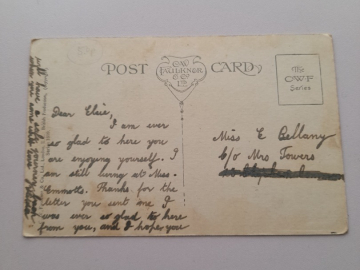 POST CARD
C.W. FAULKNER & Co LTD
The C.W.F Series
Dear Elsie,
I am ever
so glad to here you
are enjoying yourself. I
am still living at Miss.
Emmotts. Thanks for the
letter you sent me I
was ever so glad to here
from you, and I hope you
will have a safe journey back
when you come
Miss E Bellany
c/o Mrs Towers